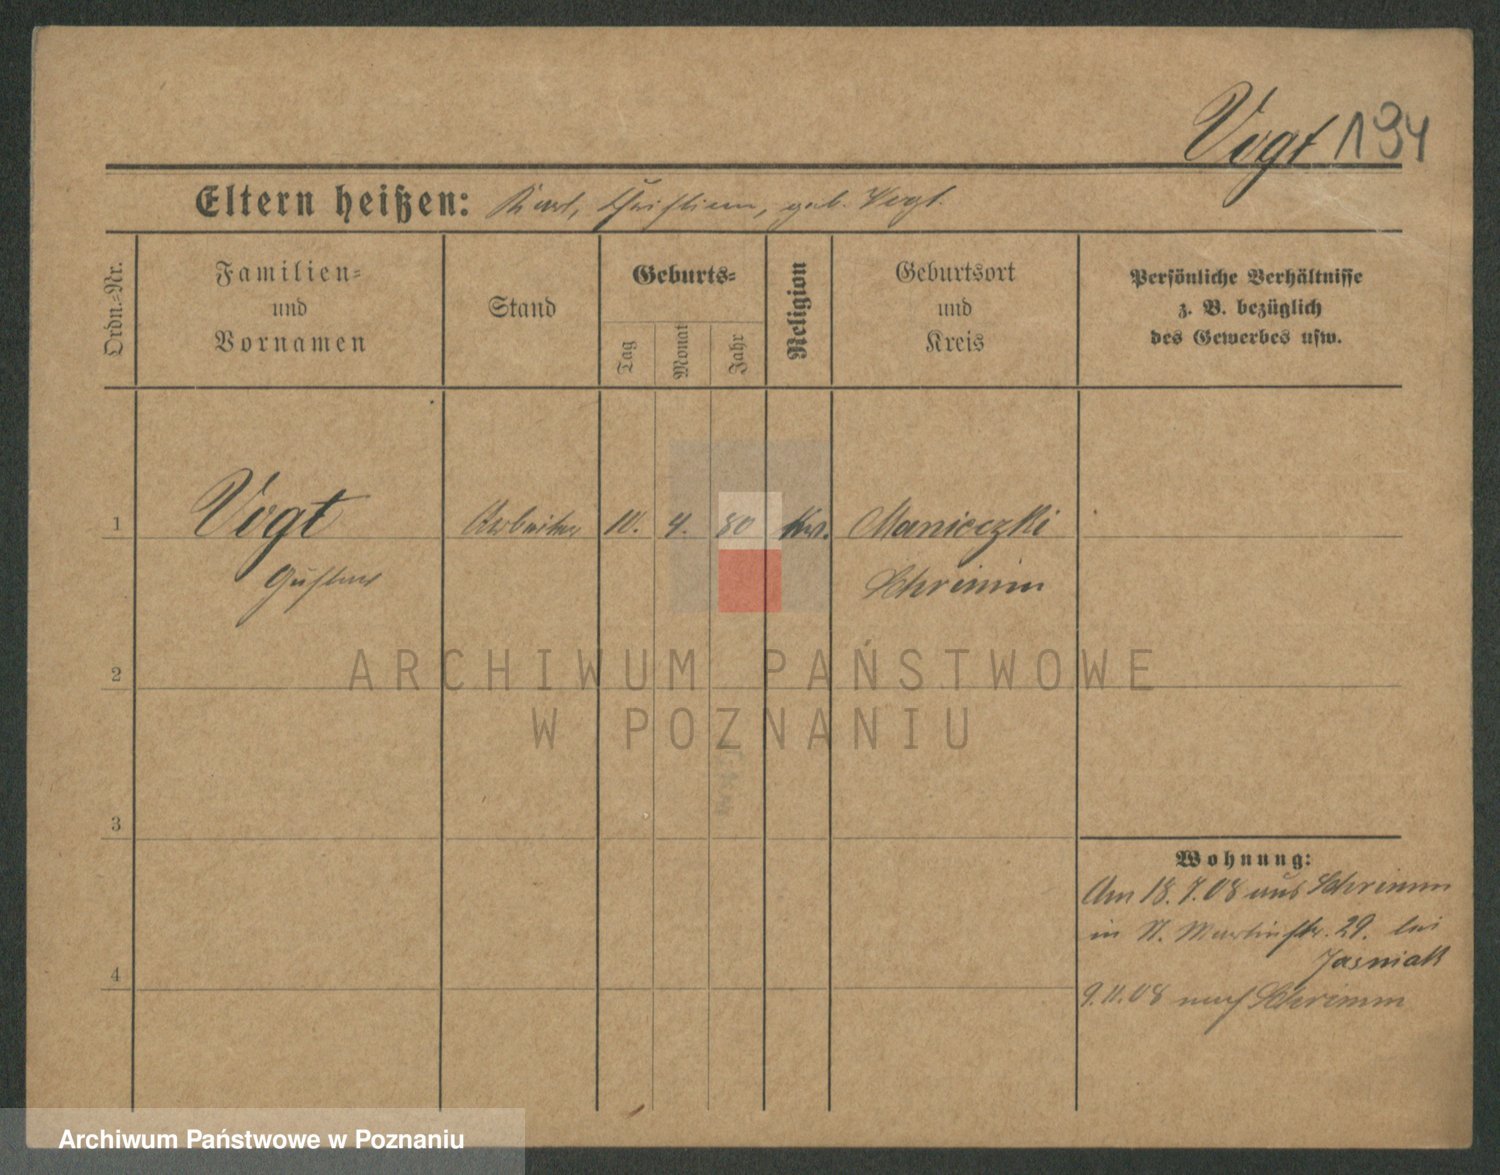 Vogt 134
Eltern heißen: Karl, Christine, geb. Vogt.
Ordn.-Nr.
Familien-
und
Vornamen
Stand
Geburts-
Tag
Monat
Jahr
Religion
Geburtsort
und
Kreis
Persönliche Verhältnisse
z. B. bezüglich
des Gewerbes usw.
1 Vogt Arbeiter 10. 4. 80 Manieczki
Gustav Schrimm
ARCHIWUM PAŃSTWOWE
2
W POZNANIU
3
Wohnung:
Am 18.7.08 aus Schrimm
in St. Martinstr. 29. bei
Jasniak
4
9.11.08 nach Schrimm
Archiwum Państwowe w Poznaniu